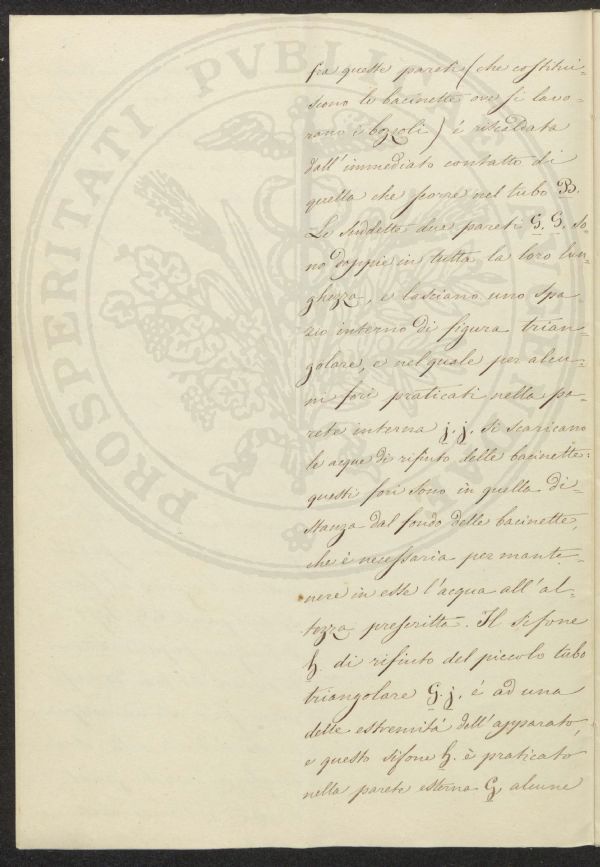 fra queste pareti (che costitui-
scono le bacinette ove si lavo-
rano i bozzoli) é riscaldata
dall'immediato contatto di
quella che scorre nel tubo B.
Le suddette due pareti G. G. so-
no doppie in tutta la loro lun-
ghezza, e lasciano uno spa
zio interno di figura trian-
golare, e nel quale per alcu-
ni fori praticati nella pa-
rete interna j. j. si scaricano
le acque di rifiuto delle bacinette:
questi fori sono in quella di-
stanza dal fondo delle bacinette,
che è necessaria per mante-
nere in esse l'acqua all'al-
tezza prescritta. Il sifone
h. di rifiuto del piccolo tubo
triangolare G. j. é ad una
delle estremità dell'apparato,
e questo sifone h. è praticato
nella parete esterna G alcune
PROSPERITATI PVBLI